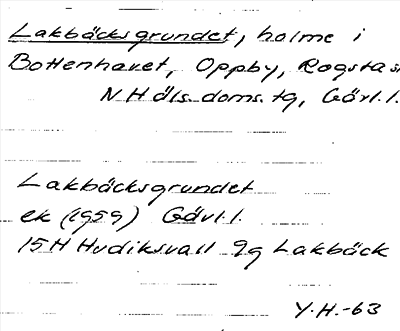 Lakbäcksgrundet, holme i
Bottenhavet, Oppby, Rogsta s
N Häls. doms. tg, Gävl. l.
Lakbäcksgrundet
ek (1959) Gävl. l.
15H Hudiksvall 9g Lakbäck
Y.H.-63